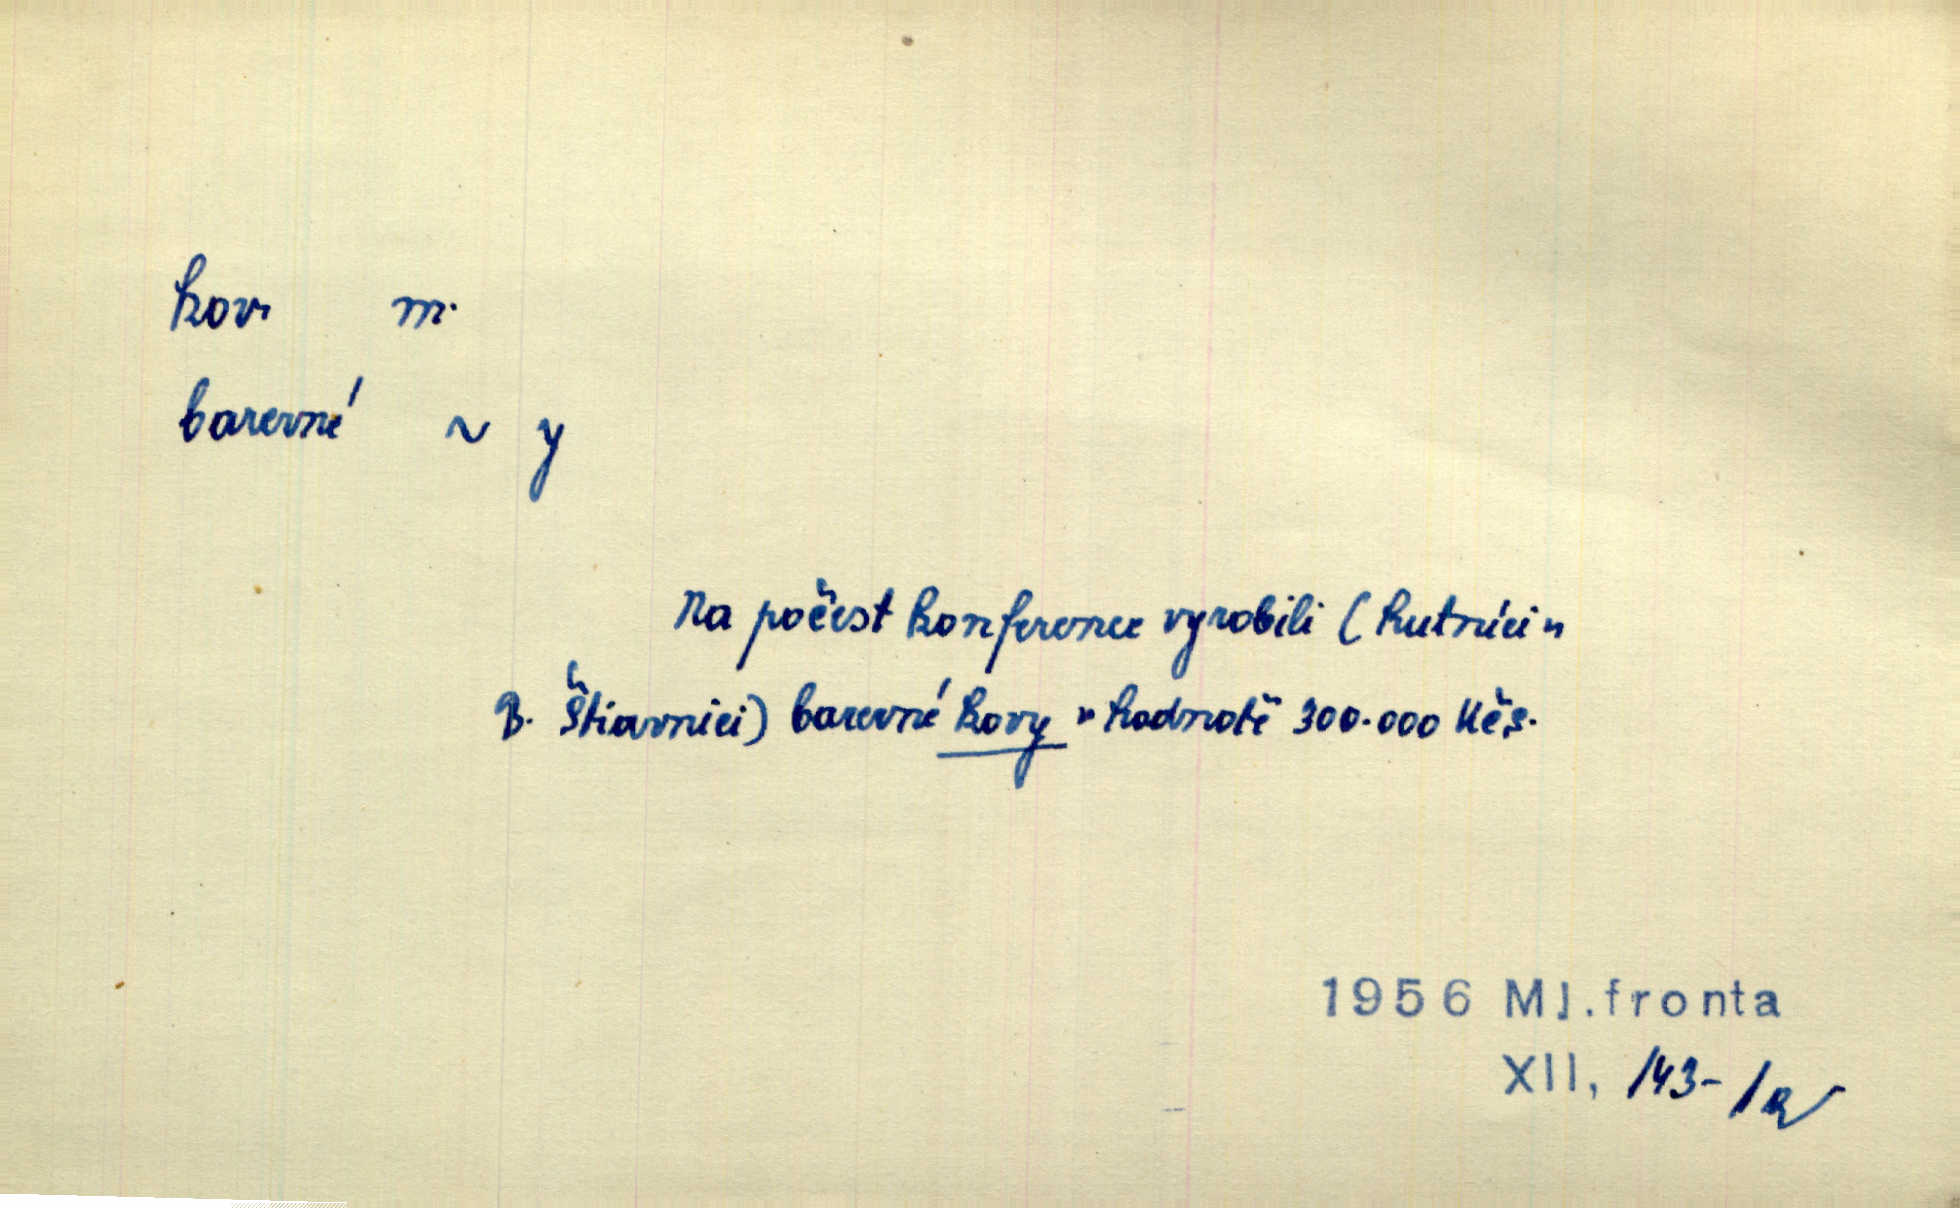 kov m.
barevné ~ y
Na počest konference vyrobili (hutníci v
B. Štiavnici) barevné kovy v hodnotě 300.000 Kčs.
1956 Ml.fronta
XII, 143-1